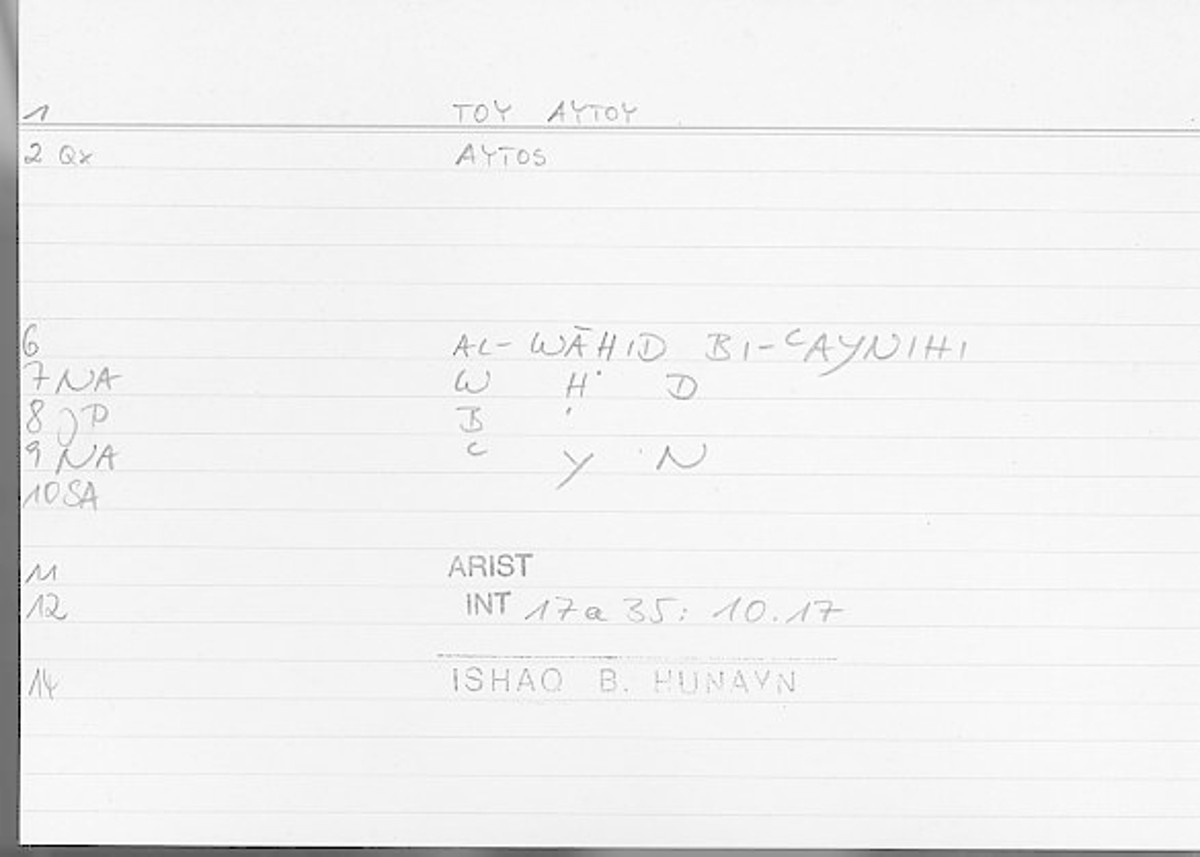 1 TOY AYTOY
2 Qx AYTOS
6 AL-WĀḤID BI-ᶜAYNIHI
7 NA W Ḥ D
8 JP B '
9 NA ᶜ Y N
10 SA
11 ARIST
12 INT 17a 35: 10.17
14 ISHAQ B. HUNAYN